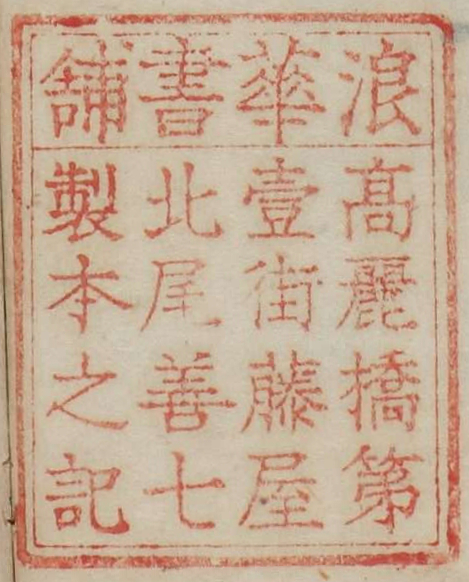 浪華書舗
高麗橋第
壹街藤屋
北尾善七
製本之記